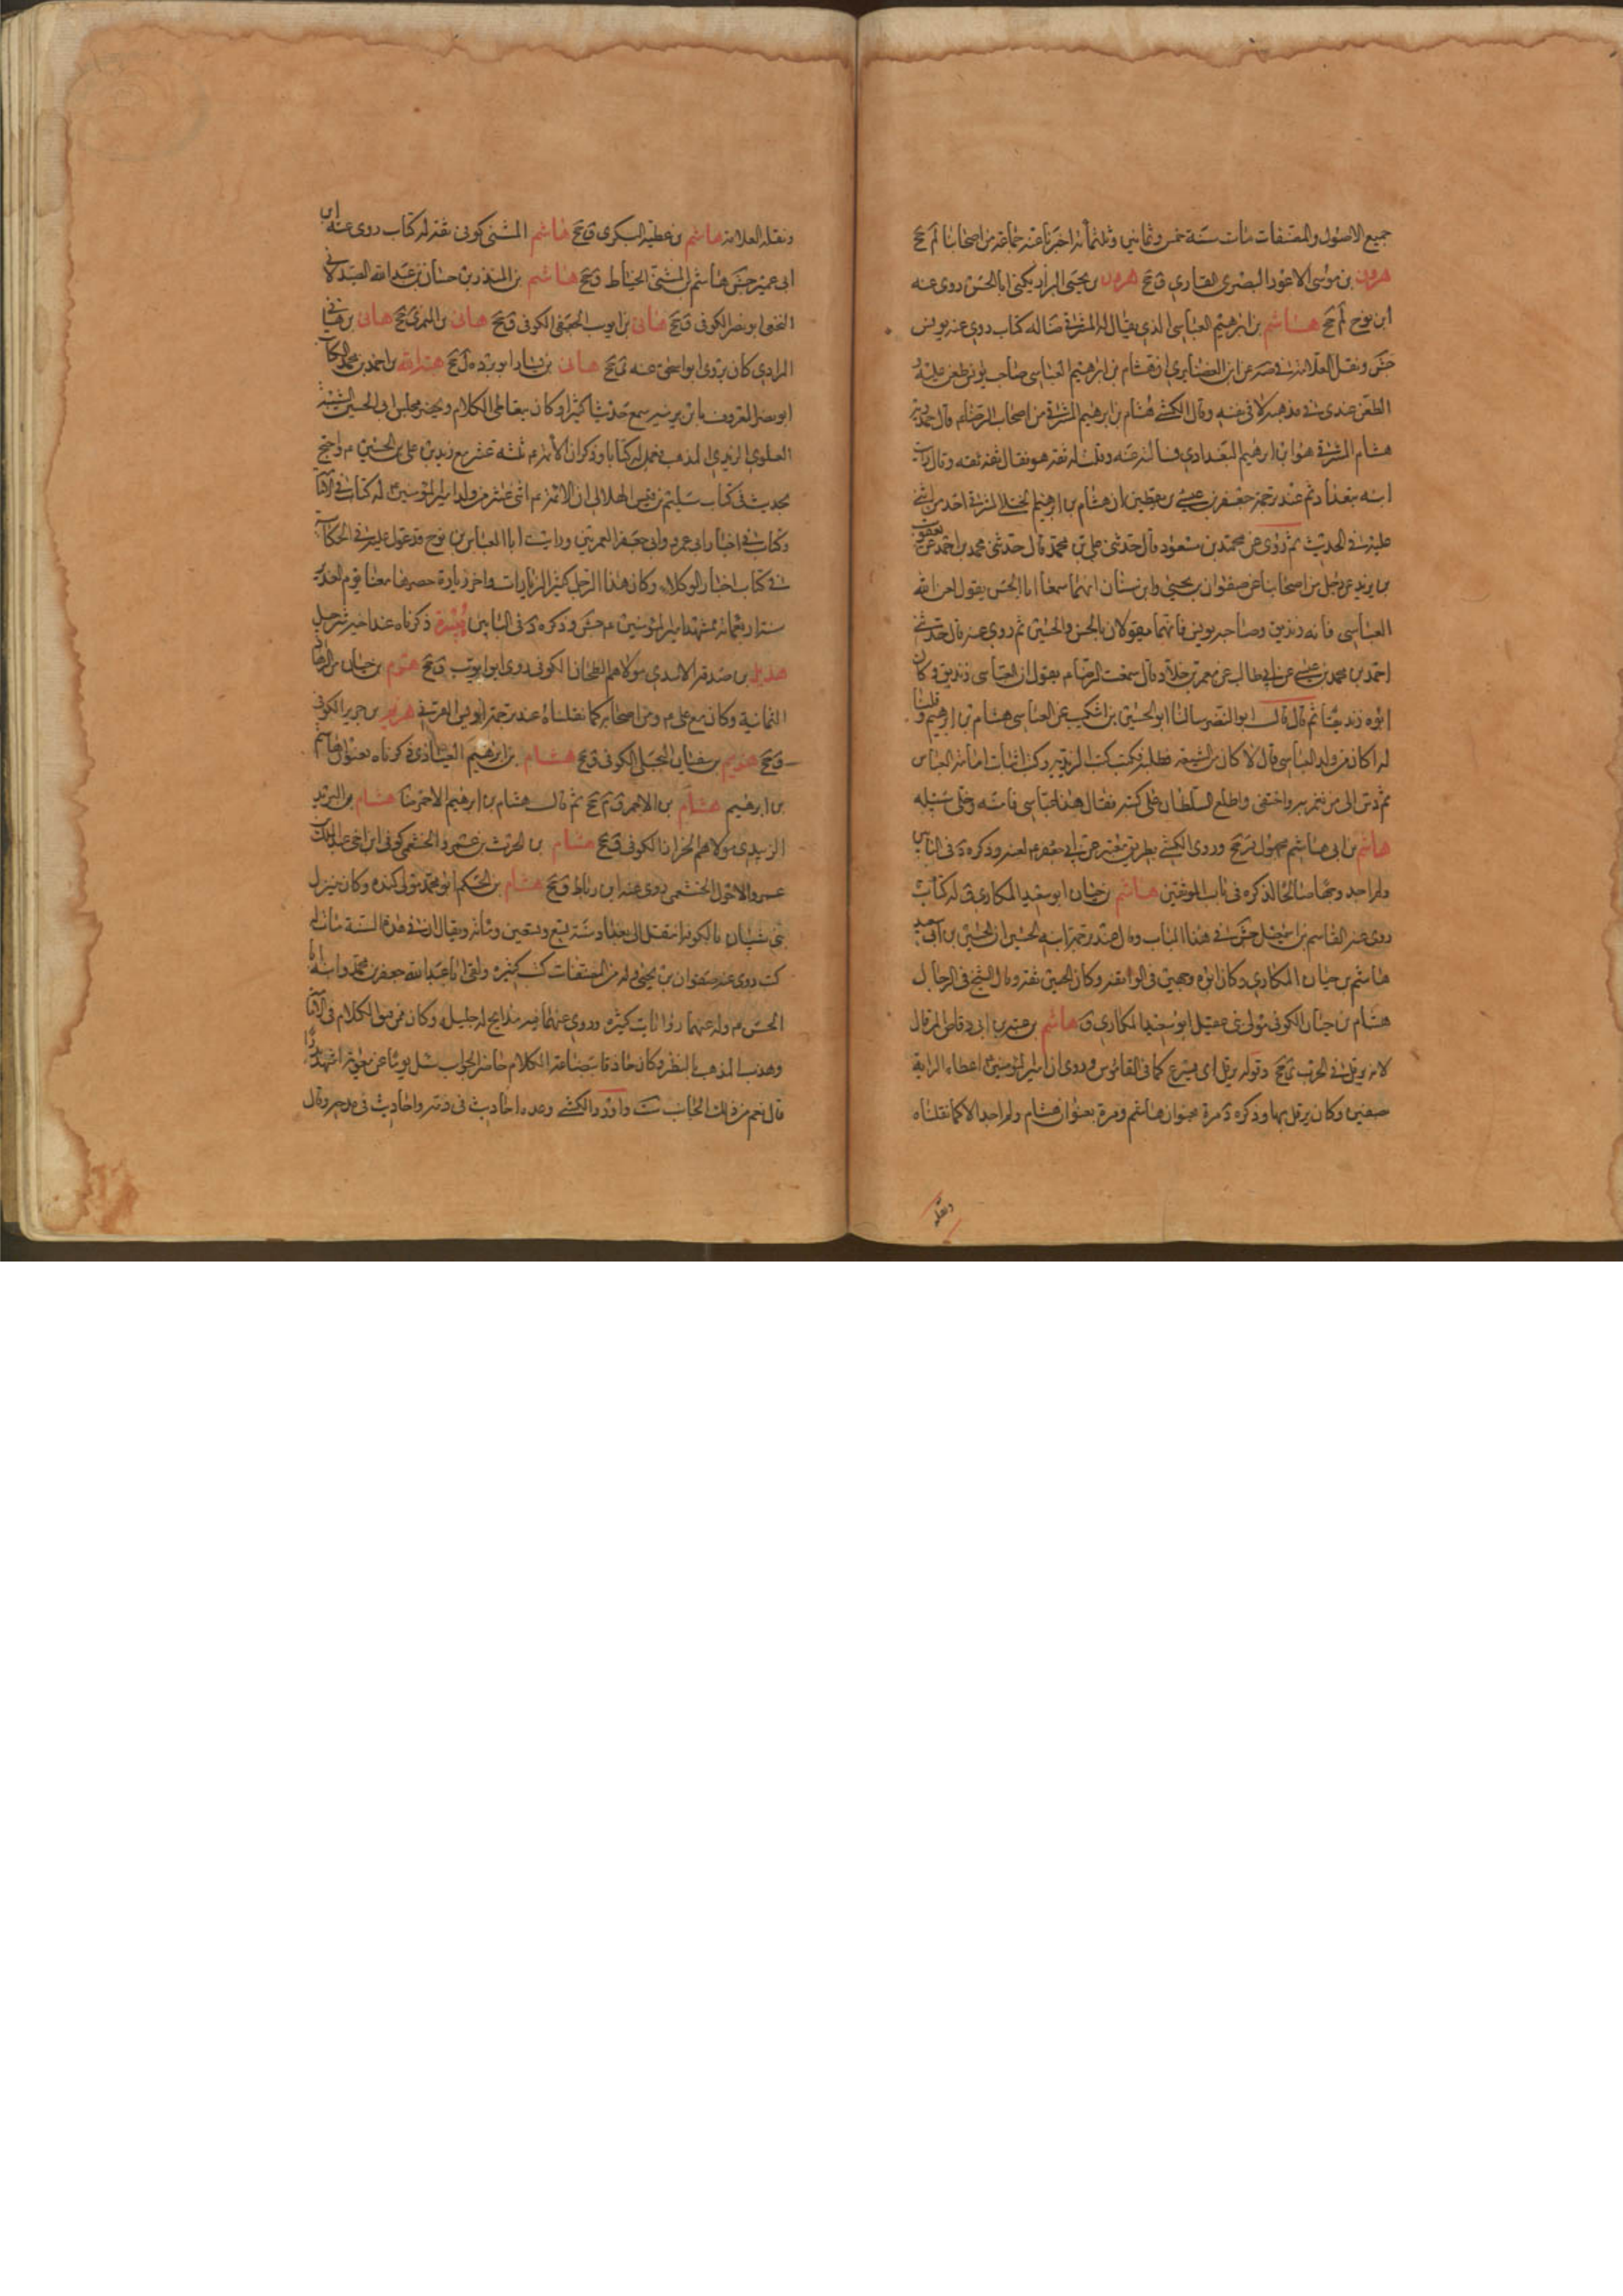 جميع الاصول والمصنفات مات سنة خمس وثمانين وثلثمائة اخبرنا عنه جماعة من اصحابنا لم جخ
هرون بن موسى الاعور البصري القاري ق جخ هرون بن يحيى البزاز يكنى ابا الحسن روى عنه
ابن نوح لم جخ هاشم بن ابرهيم العباسي الذي يقال له المشرقي ضا له كتاب روى عنه يونس
جش ونقل العلامة في صه عن ابن الغضايري ان هشام بن ابرهيم العباسي صاحب يونس طعن عليه
الطعن عندي في مذهبه لا في نفسه وقال الكشي هشام بن ابرهيم المشرقي من اصحاب الرضا م قال حمدويه
هشام المشرقي هو ابن ابرهيم البغدادي فسألته عنه وقلت له ثقة هو فقال ثقة ثقة وقال رايت
ابنه ببغداد ثم عند ترجمة جعفر بن عيسى بن يقطين ان هشام بن ابرهيم الختلي المشرقي احد من اثنى
عليه في الحديث ثم روى عن محمد بن مسعود قال حدثني علي بن محمد قال حدثني محمد بن احمد عن يعقوب
بن يزيد عن رجل من اصحابنا عن صفوان بن يحيى وابن سنان انهما سمعا ابا الحسن يقول لعن الله
العباسي فانه زنديق وصاحبه يونس فانهما يقولان بالحسن والحسين ثم روى عنه قال حدثني
احمد بن محمد بن عيسى عن ابي طالب عن معمر بن خلاد قال سمعت الرضا م يقول ان العباسي زنديق وكان
ابوه زنديقا ثم قال قال ابو النضر سالنا ابو الحسين بن اشكيب عن العباسي هشام بن ابرهيم وقلنا
له اكان من ولد العباس قال لا كان من الشيعة فطلبه فكتب كتب الزيدية وكتب اثبات امامة العباس
ثم دس الى من يغمز به واختفى واطلع السلطان على كتبه فقال هذا عباسي فامنه وخلى سبيله
هاشم بن ابي هاشم مجهول قر جخ وروى الكشي بطريق معتبر عن ابي جعفر م لعنه وذكره د في البابين
ولم اجد وجها صالحا لذكره في باب الموثقين هاشم بن حيان ابو سعيد المكاري ق له كتاب
روى عنه القاسم بن اسمعيل جش في هذا الباب وقال عند ترجمة ابنه الحسين ان الحسين بن ابي سعيد
هاشم بن حيان المكاري وكان ابوه وجهين في الواقفة وكان الحسين ثقة وقال الشيخ في الرجال
هشام بن حيان الكوفي مولى بني عقيل ابو سعيد المكاري ق هاشم بن عتبة بن ابي وقاص المرقال
لانه يرقل في الحرب ي جخ وقوله يرقل اي يسرع كما في القاموس وروى ان امير المؤمنين اعطاه الراية
صفين وكان يرقل بها وذكره د مرة بعنوان هاشم ومرة بعنوان هشام ولم اجد الا كما نقلناه
ونقله
ونقله العلامة هاشم بن عطية البكري ق جخ هاشم المثنى كوفي ثقة له كتاب روى عنه ابن
ابي عمير جش هاشم بن المثنى الحناط ق جخ هاشم بن المنذر بن حسان بن عبد الله العبدلاني
النخعي ابو نصر الكوفي ق جخ هاني بن ايوب الجعفي الكوفي ق جخ هاني بن النمري جخ هاني بن هاني
المرادي كان يروي ابو اسحق عنه ي جخ هاني بن نيار ابو بردة ل جخ هبة الله بن احمد بن محمد الكاتب
ابو نصر المعروف بابن برنية سمع حديثا كثيرا وكان يتعاطى الكلام ويحضر مجلس ابي الحسين بن الشيبه
العلوي الزيدي المذهب فعمل له كتابا وذكر ان الائمة م ثلثة عشر مع زيد بن علي بن الحسين م واحتج
بحديث في كتاب سليم بن قيس الهلالي ان الائمة م اثنى عشر من ولد امير المؤمنين له كتاب في الامامة
وكتاب في اخبار ابي عمرو وابي جعفر العمريين ورايت ابا العباس بن نوح قد عول عليه في الحكاية
في كتاب اخبار الوكلاء وكان هذا الرجل كثير الزيارات واخر زيارة حضرها معنا يوم الغدير
سنة اربعمائة بمشهد امير المؤمنين م جش وذكره د في البابين هبيرة ذكرناه عند اخيه شرحبيل
هذيل بن صدقة الاسدي مولاهم الطحان الكوفي روى ابو ايوب ق جخ هرم بن حيان من الزهاد
الثمانية وكان مع علي م ومن اصحابه كما نقلناه عند ترجمة اويس القرني هرير بن جرير الكوفي
ق جخ هزيم بن سفيان البجلي الكوفي ق جخ هشام بن ابرهيم العباسي ذكرناه بعنوان هاشم
بن ابرهيم هشام بن الاحمر ق م جخ ثم قال هشام بن ابرهيم الاحمر ضا هشام بن البريد
الزبيدي مولاهم الخزاز الكوفي ق جخ هشام بن الحرث بن عمرو الخثعمي كوفي ابن اخي عبد الملك
عمرو الاحول الخثعمي روى عنه ابن رباط ق جخ هشام بن الحكم ابو محمد مولى كندة وكان ينزل
بني شيبان بالكوفة انتقل الى بغداد سنة تسع وتسعين ومائة ويقال ان في هذه السنة مات له
كتب روى عنه صفوان بن يحيى وله من المصنفات كتب كثيرة ولقى ابا عبد الله جعفر بن محمد وابنه ابا
الحسن م وله عنهما روايات كثيرة وروى عنهما فيه مدايح له جليلة وكان ممن فتق الكلام في الامامة
وهذب المذهب بالنظر وكان حاذقا بصناعة الكلام حاضر الجواب سئل يوما عن معوية اشهد بدرا
قال نعم من ذلك الجانب ست واورد الكشي وعده احاديث في ذمه واحاديث في مدحه وقال